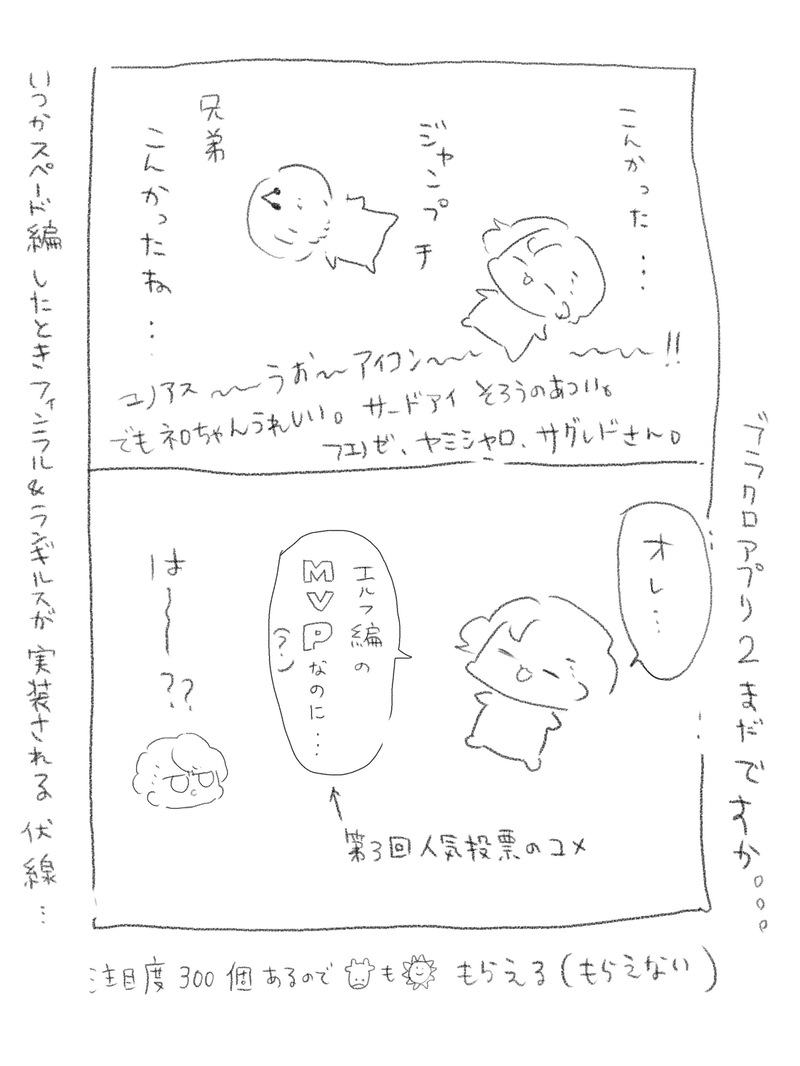 こんかった…
ジャンプチ
兄弟
こんかったね…
ユノアス〜〜うお〜アイコン〜〜 〜〜〜!!
でもネロちゃんうれしい。サードアイ そろうのあつい。
フエゼ、ヤミシャロ、サグレドさん。
ブラクロアプリ2まだですか。。。
オレ…
エルフ編の
MVPなのに…
(?)
は〜〜??
第3回人気投票のコメ
いつかスペード編したときフィンラル&ランギルスが実装される伏線…
注目度300個あるので も もらえる(もらえない)